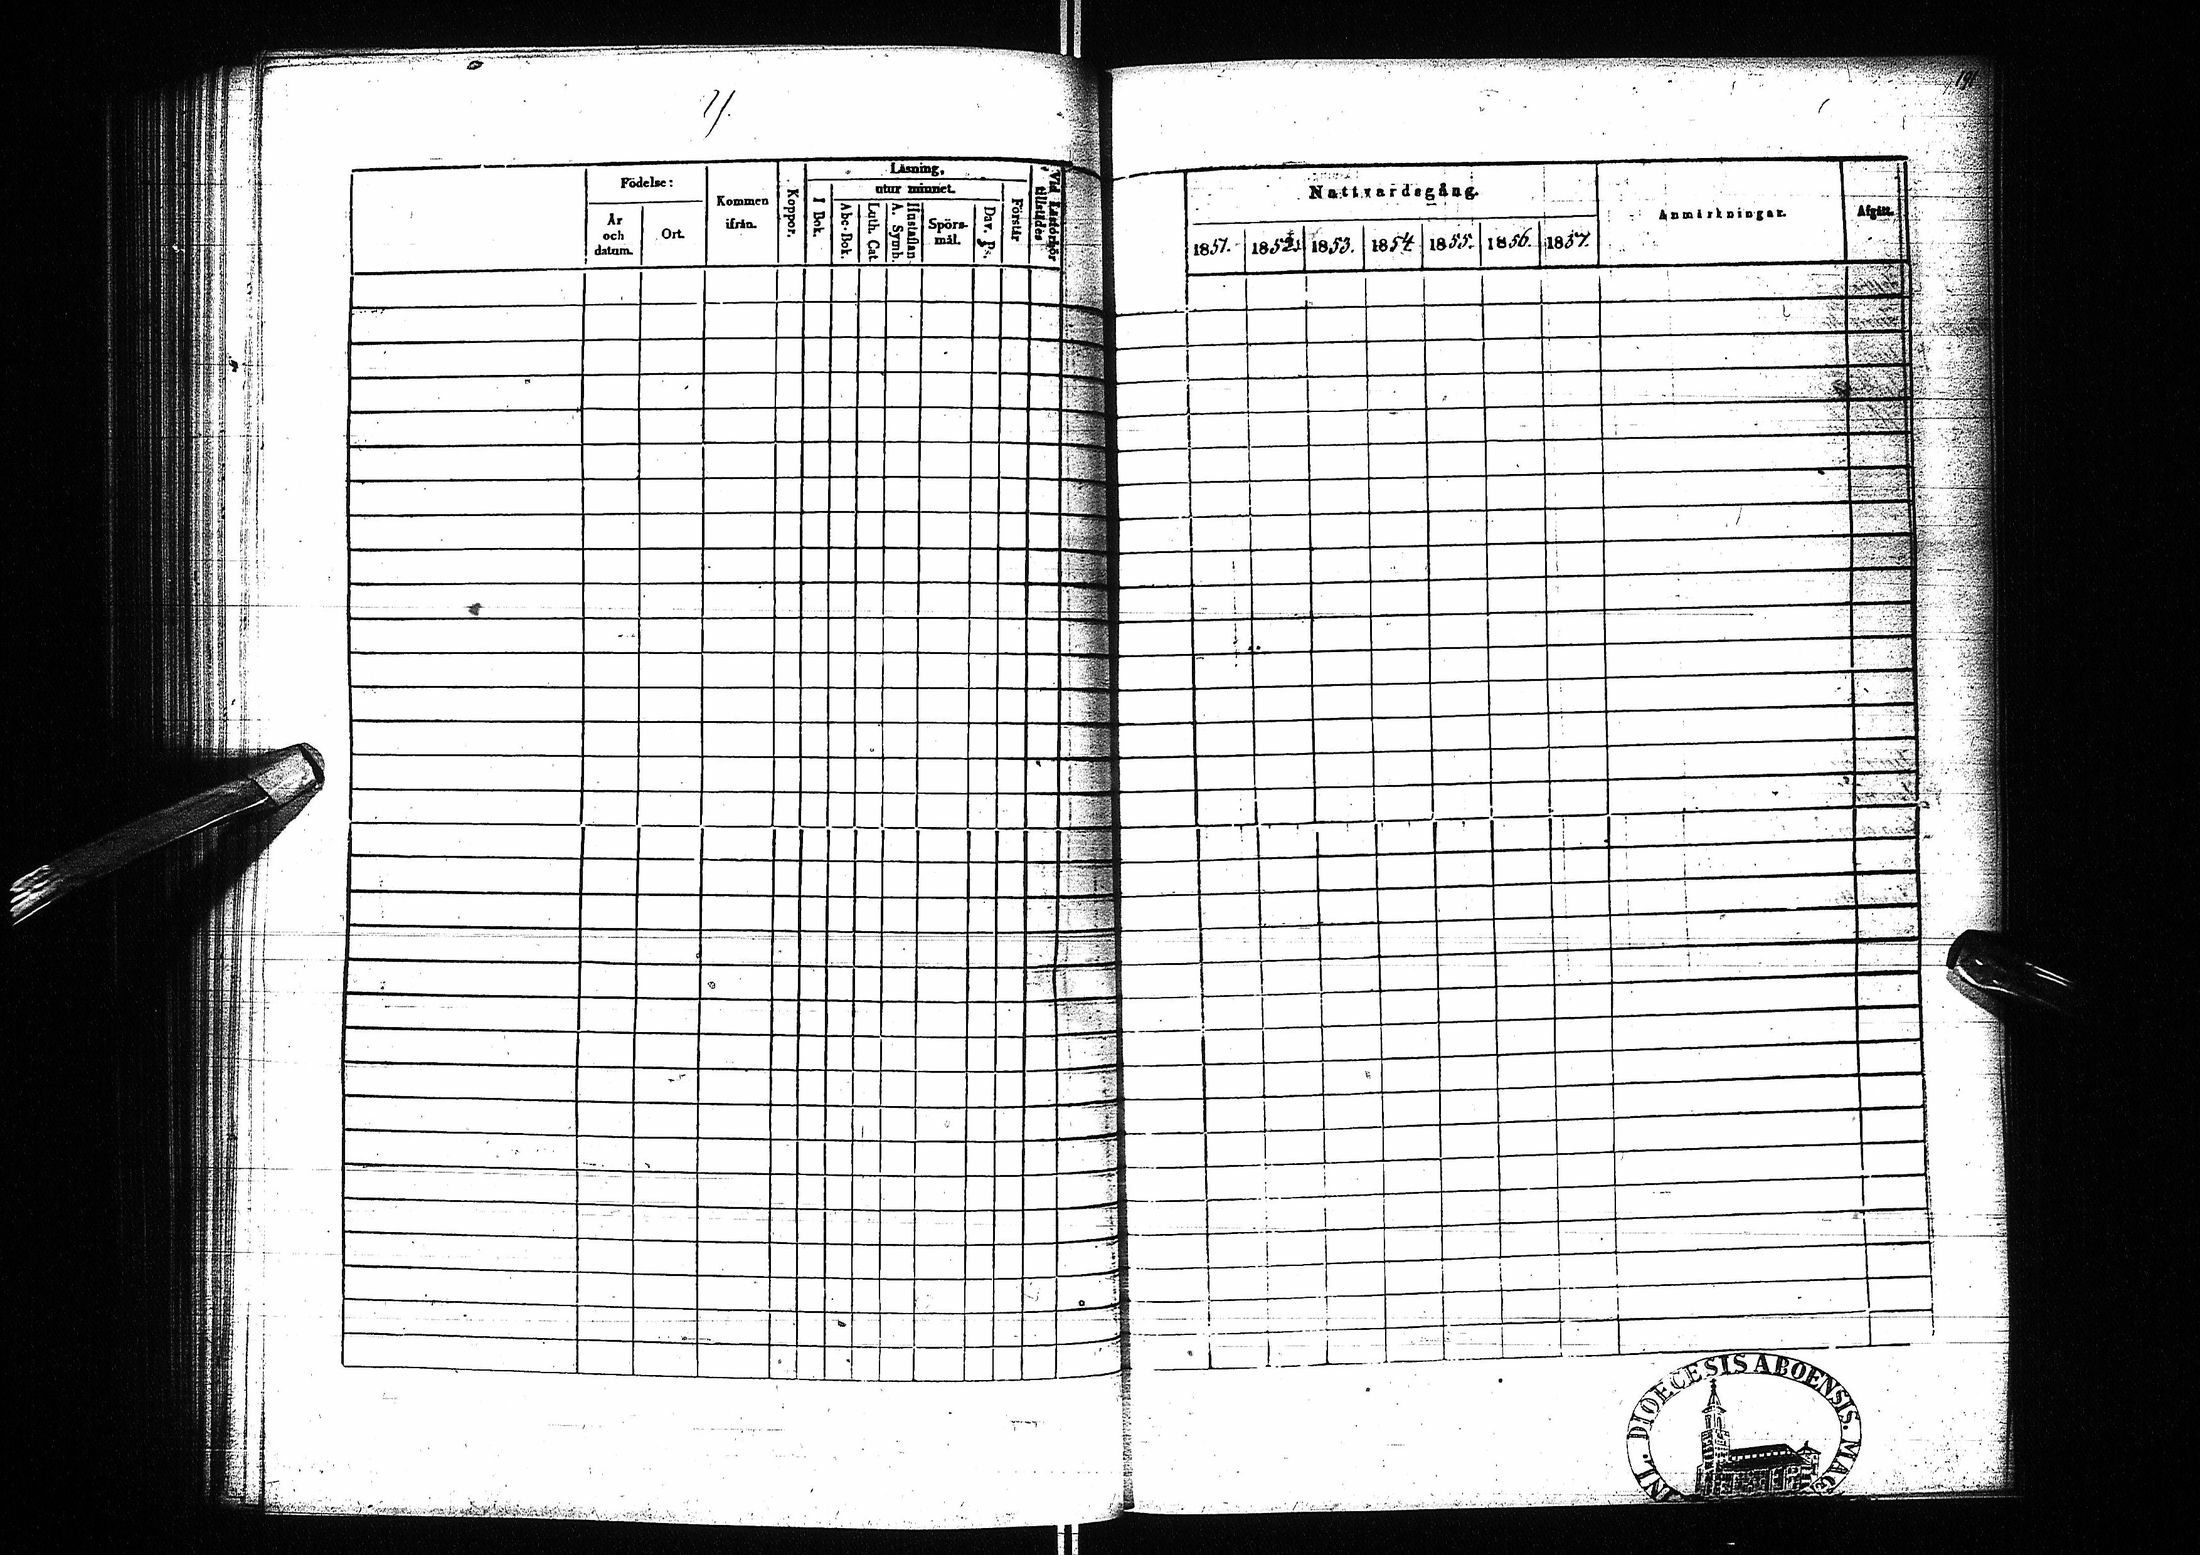 Y.
Födelse:
År och datum.
Ort.
Kommen ifrån.
Koppor.
Läsning,
I Bok.
utur minnet.
Abc-Bok.
Luth. Cat.
Hustaflan. A. Symb.
Spörs-mål.
Dav. Ps.
Förstår
Vid Läsförhör tillstädes
191
Nattvardsgång.
1851. 1852. 1853. 1854. 1855. 1856. 1857.
Anmärkningar.
Afgått.
DIOECESIS ABOENSIS. MAG